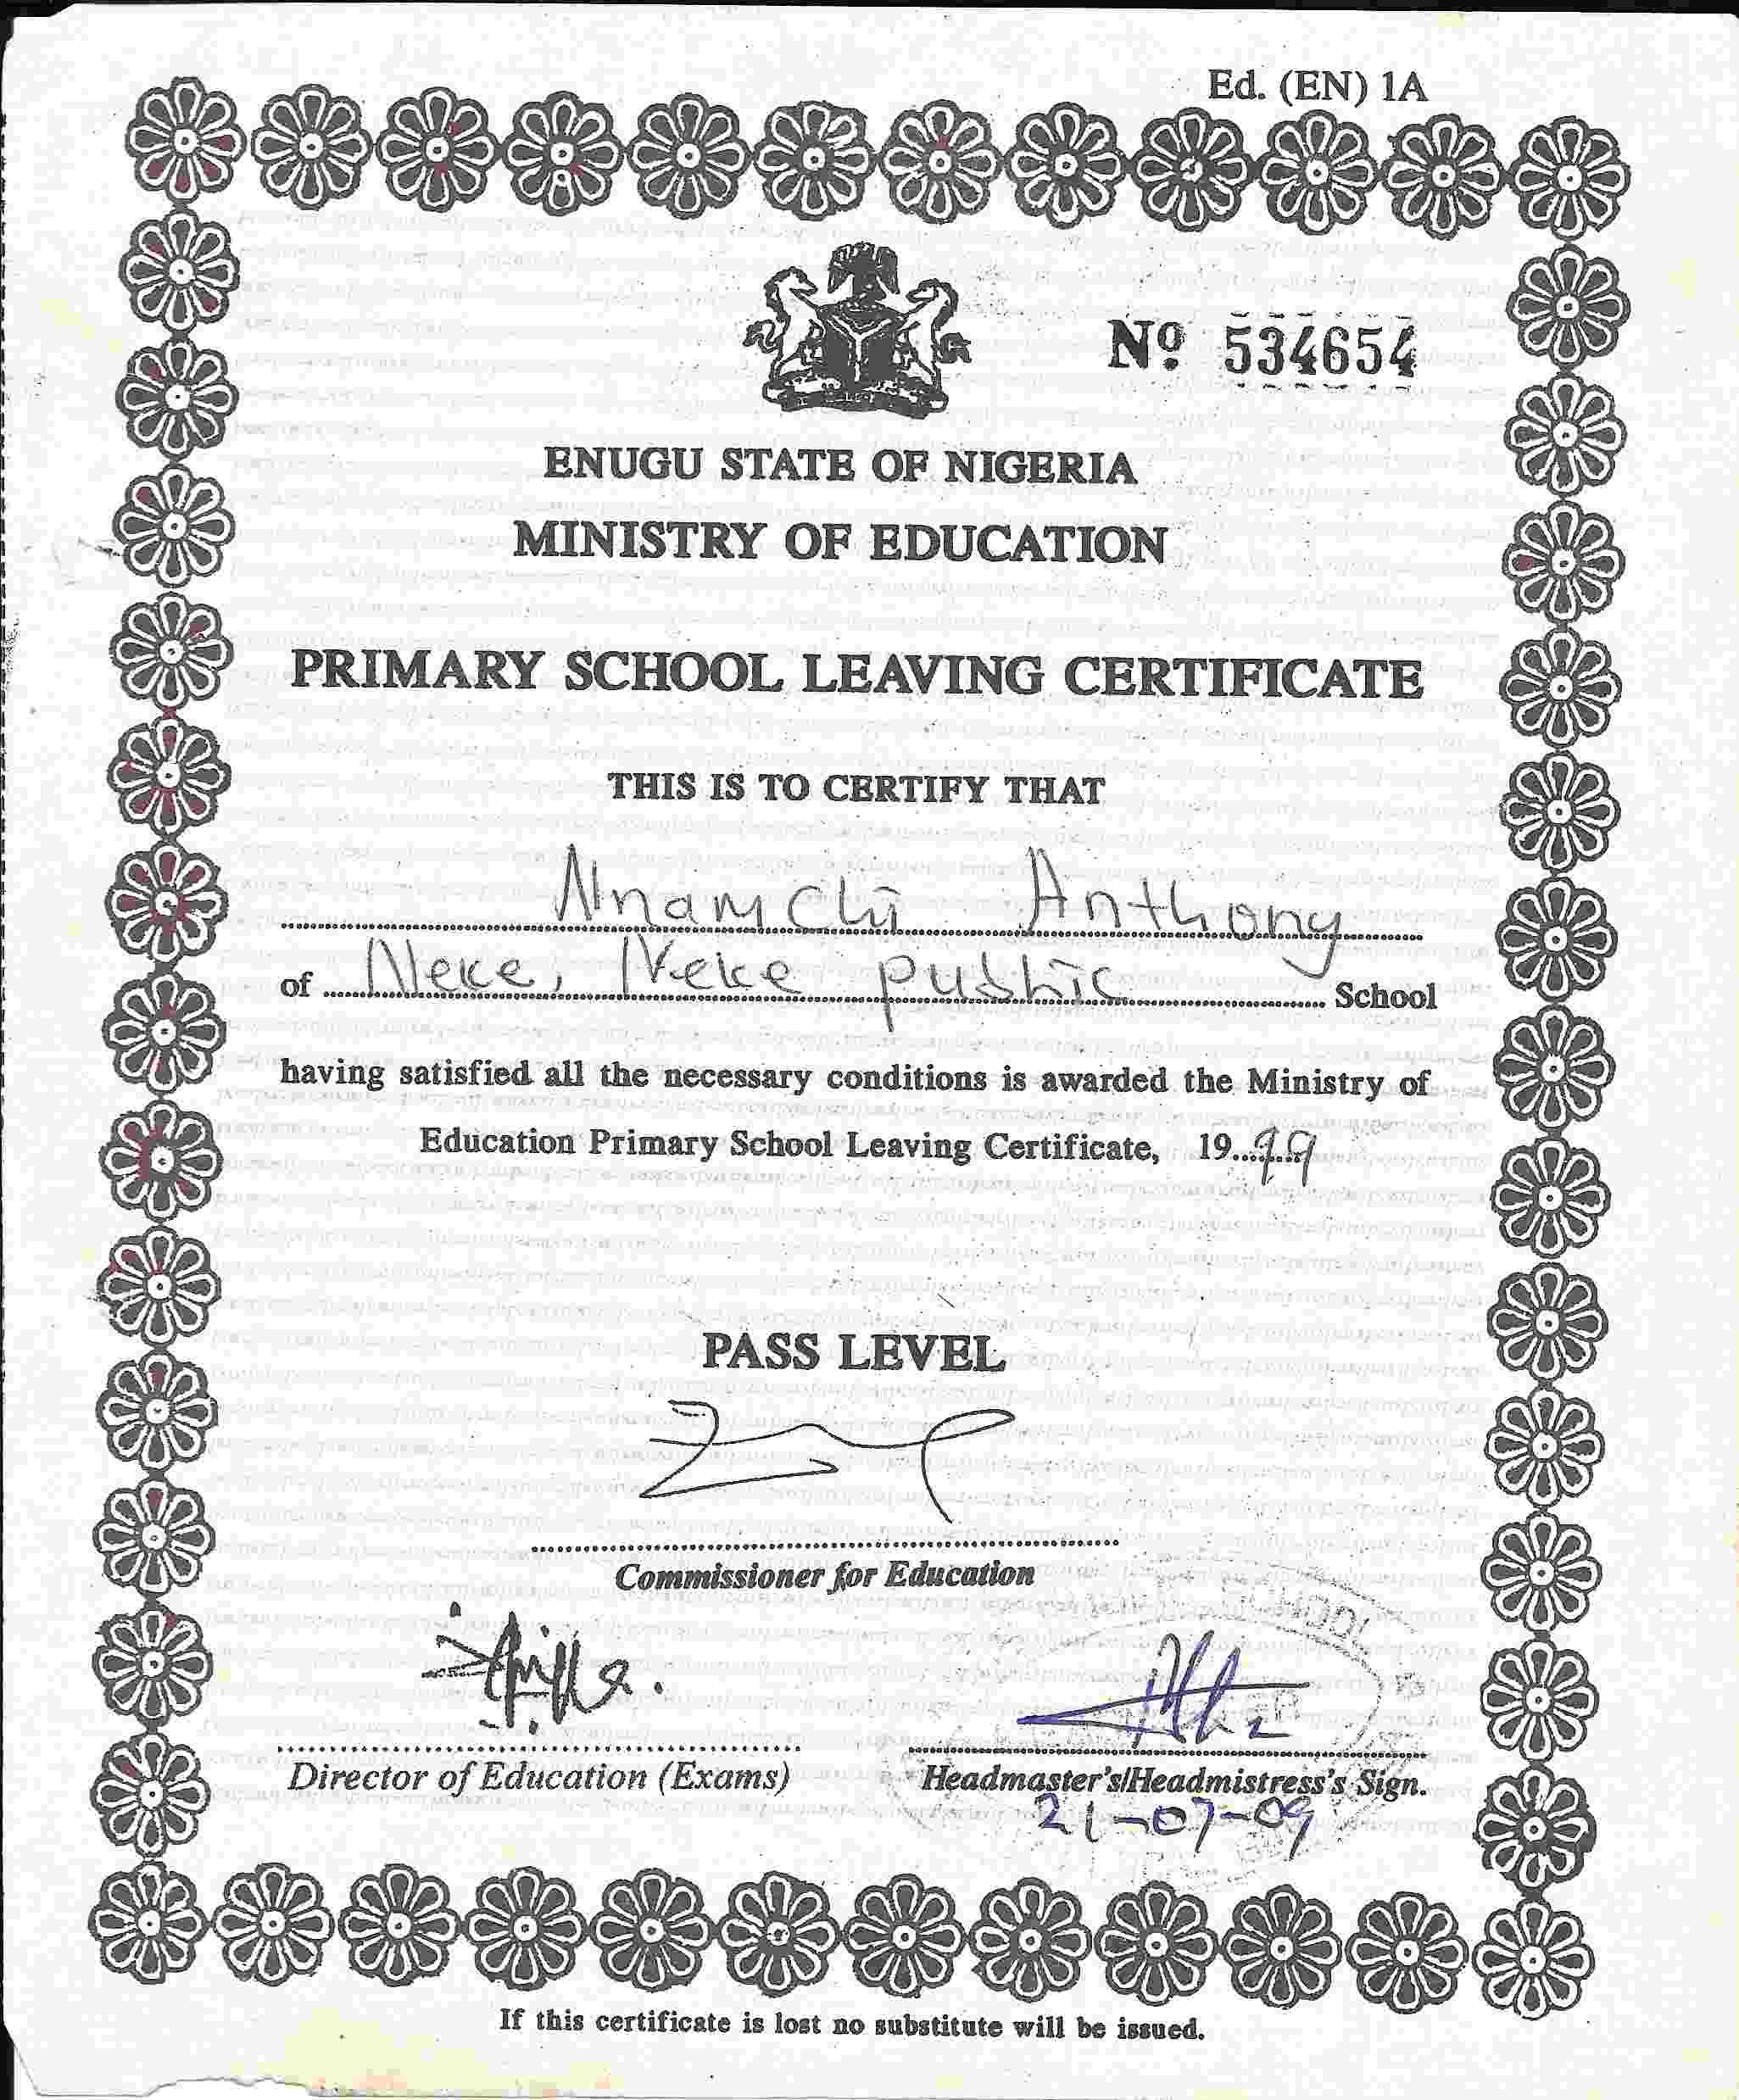 Ed. (EN) 1A
Nº 534654
ENUGU STATE OF NIGERIA
MINISTRY OF EDUCATION
PRIMARY SCHOOL LEAVING CERTIFICATE
THIS IS TO CERTIFY THAT
Nnamchi Anthony
of Neke, Neke public School
having satisfied all the necessary conditions is awarded the Ministry of
Education Primary School Leaving Certificate, 19 99
PASS LEVEL
Commissioner for Education
Director of Education (Exams)
Headmaster's/Headmistress's Sign.
21-07-09
If this certificate is lost no substitute will be issued.